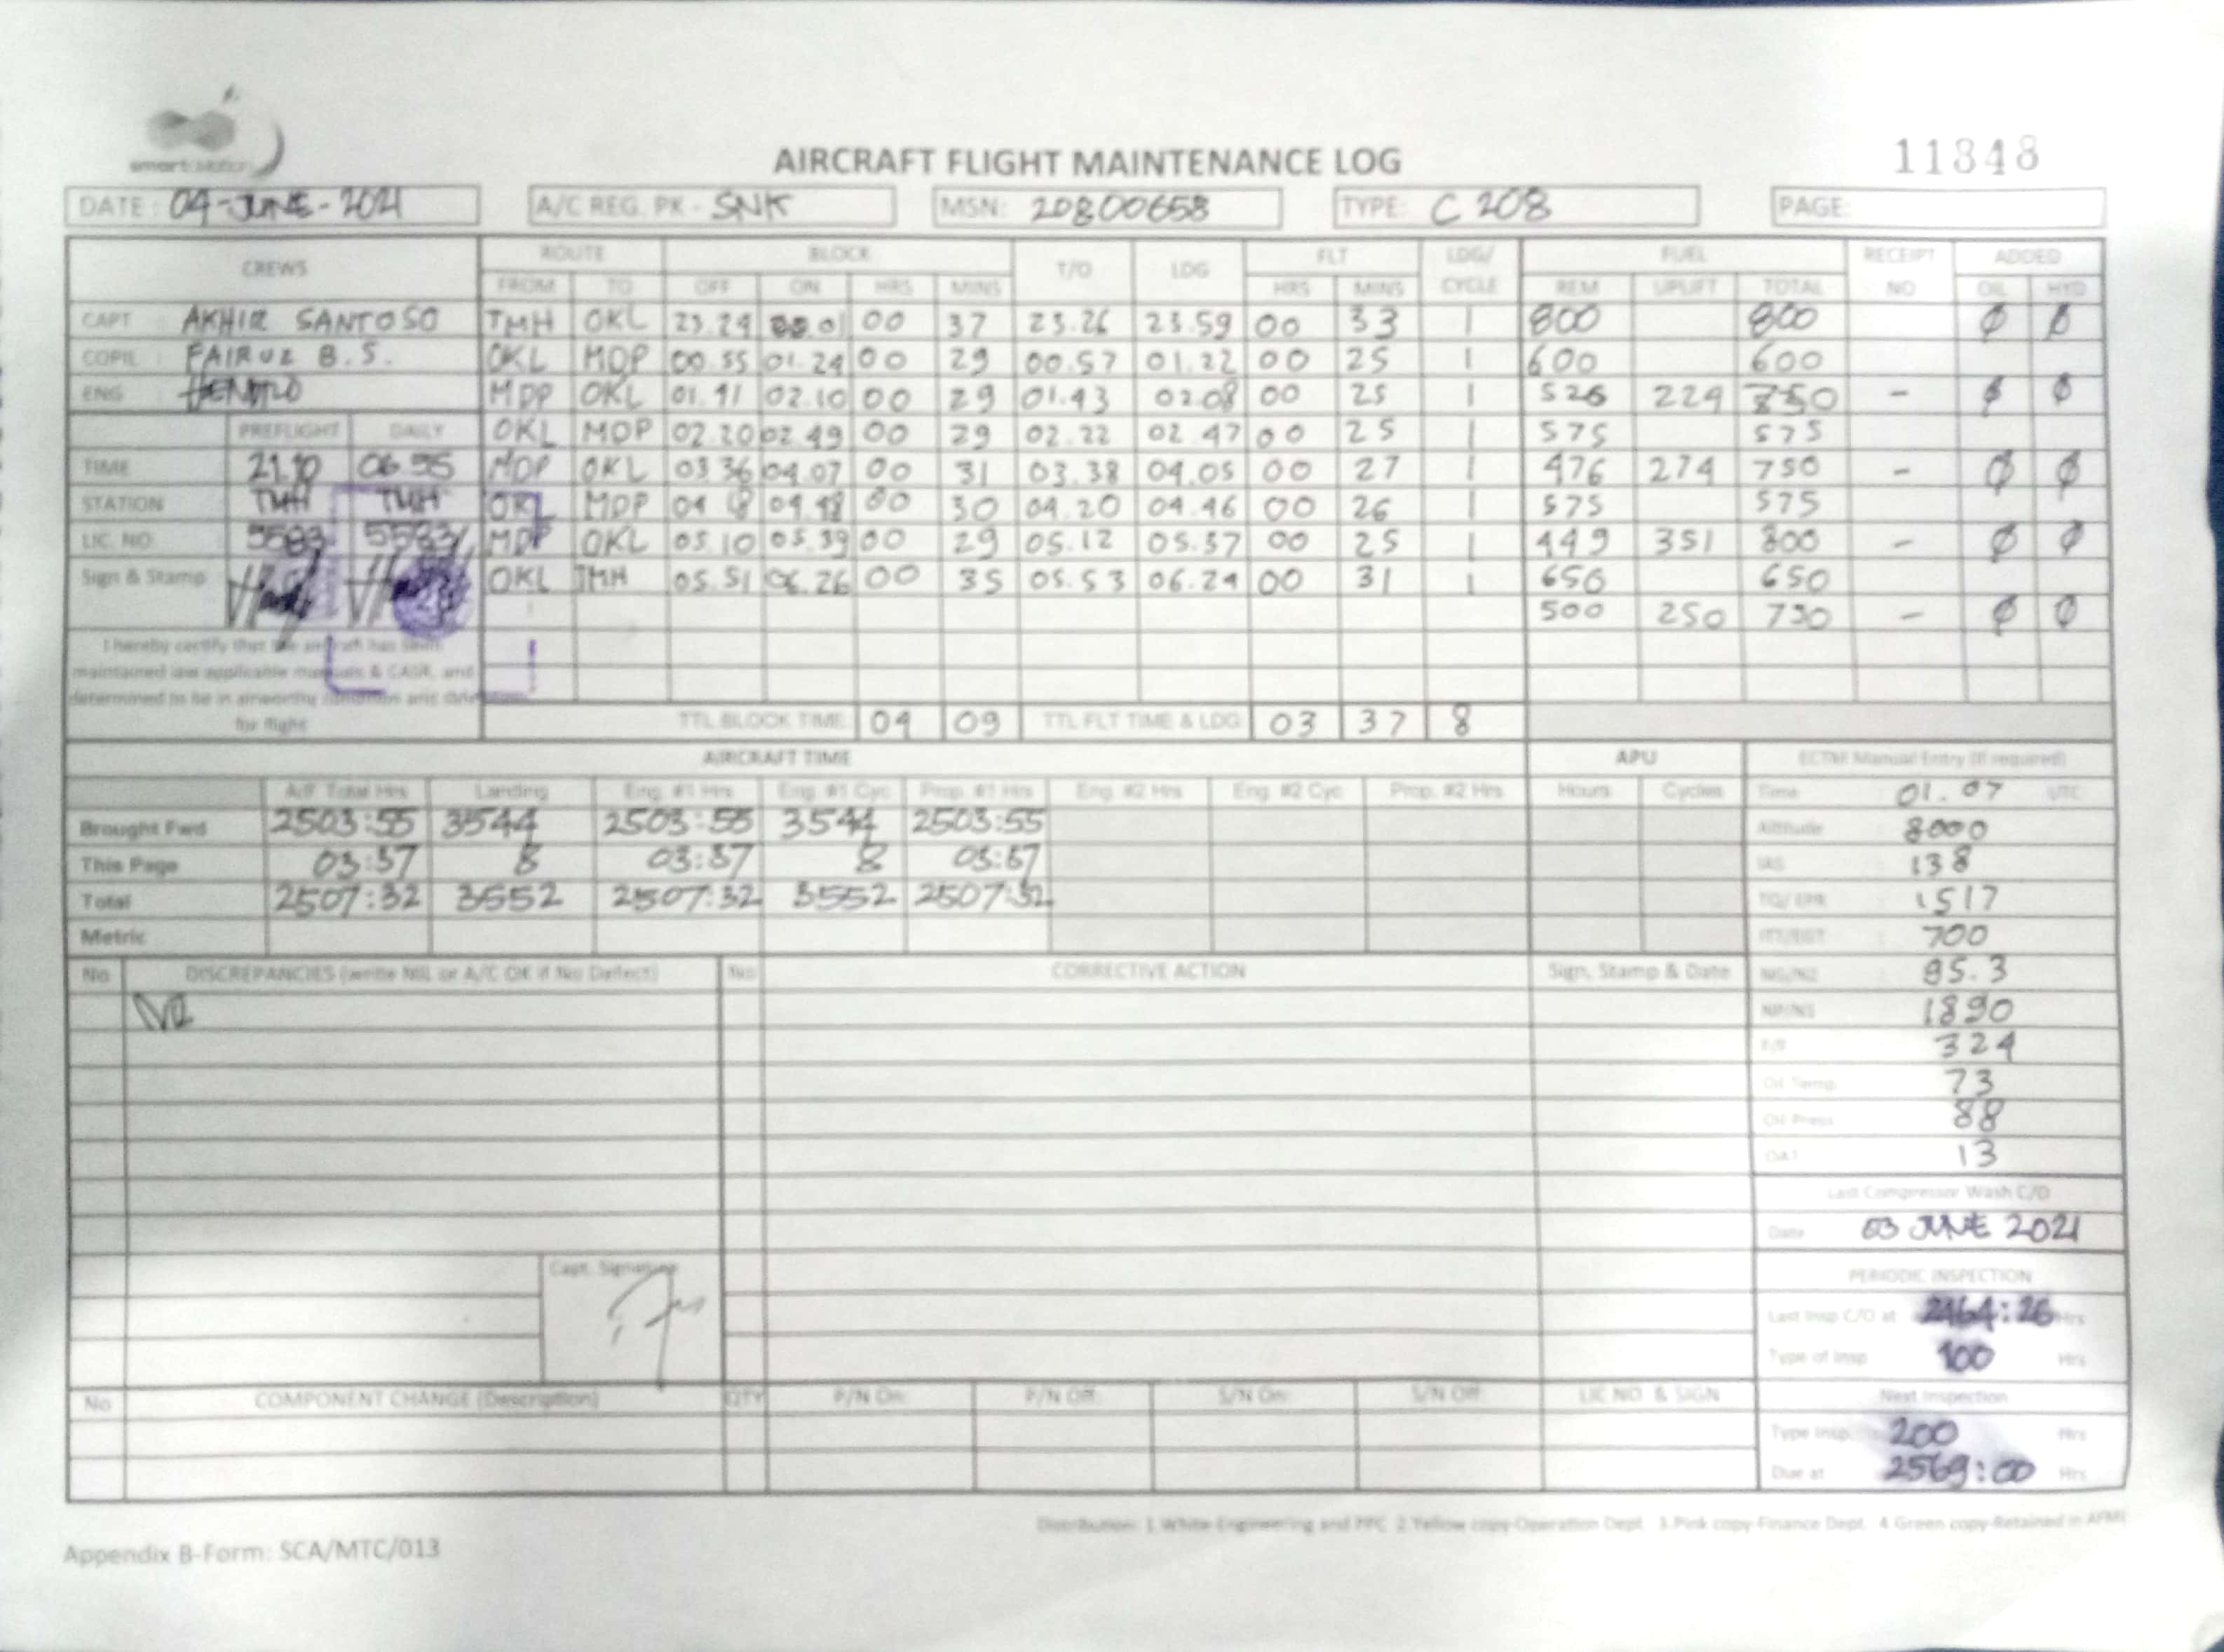 smart aviation
AIRCRAFT FLIGHT MAINTENANCE LOG
11348
DATE : 04-JUNE-2021 A/C REG. PK - SNK MSN: 20800658 TYPE: C 208 PAGE:
CREWS ROUTE BLOCK T/O LDG FLT LDG/ FUEL RECEIPT ADDED
FROM TO OFF ON HRS MINS HRS MINS CYCLE REM UPLIFT TOTAL NO OIL HYD
CAPT : AKHIR SANTOSO TMH OKL 23.24 00.01 00 37 23.26 23.59 00 33 1 800 800 ∅ ∅
COPIL : FAIRUZ B.S. OKL MDP 00.55 01.24 00 29 00.57 01.22 00 25 1 600 600
ENG : MDP OKL 01.41 02.10 00 29 01.43 02.08 00 25 1 526 224 750 - ∅ ∅
PREFLIGHT DAILY OKL MDP 02.20 02.49 00 29 02.22 02.47 00 25 1 575 575
TIME 21.10 06.55 MDP OKL 03.36 04.07 00 31 03.38 04.05 00 27 1 476 274 750 - ∅ ∅
STATION TMH TMH OKL MDP 04 18 04.48 00 30 04.20 04.46 00 26 1 575 575
LIC. NO 5583 5583 MDP OKL 05.10 05.39 00 29 05.12 05.37 00 25 1 449 351 800 - ∅ ∅
Sign & Stamp OKL TMH 05.51 06.26 00 35 05.53 06.24 00 31 1 650 650
500 250 750 - ∅ ∅
I hereby certify that the aircraft has been
maintained iaw applicable manuals & CASR, and
determined to be in airworthy condition and
for flight
TTL BLOCK TIME 04 09 TTL FLT TIME & LDG 03 37 8
AIRCRAFT TIME APU ECTM Manual Entry (if required)
A/F Total Hrs Landing Eng. #1 Hrs Eng. #1 Cyc Prop. #1 Hrs Eng. #2 Hrs Eng. #2 Cyc Prop. #2 Hrs Hours Cycles Time 01.07 UTC
Brought Fwd 2503:55 3544 2503:55 3544 2503:55 Altitude 8000
This Page 03:37 8 03:37 8 03:37 IAS 138
Total 2507:32 3552 2507:32 3552 2507:32 TQ/ EPR 1517
Metric ITT/EGT 700
No DISCREPANCIES (write NIL or A/C OK if No Defect) No CORRECTIVE ACTION Sign, Stamp & Date NG/N2 95.3
NP/N1 1890
F/F 324
Oil Temp. 73
Oil Press 88
OAT 13
Last Compressor Wash C/O
Date 03 JUNE 2021
Capt. Signature
PERIODIC INSPECTION
Last Insp C/O at 2464:26 Hrs
Type of Insp 100 Hrs
No COMPONENT CHANGE (Description) QTY P/N On P/N Off S/N On S/N Off LIC NO & SIGN Next Inspection
Type Insp. 200 Hrs
Due at 2569:00 Hrs
Distribution: 1.White-Engineering and PPC 2.Yellow copy-Operation Dept. 3.Pink copy-Finance Dept. 4.Green copy-Retained in AFML
Appendix B-Form: SCA/MTC/013